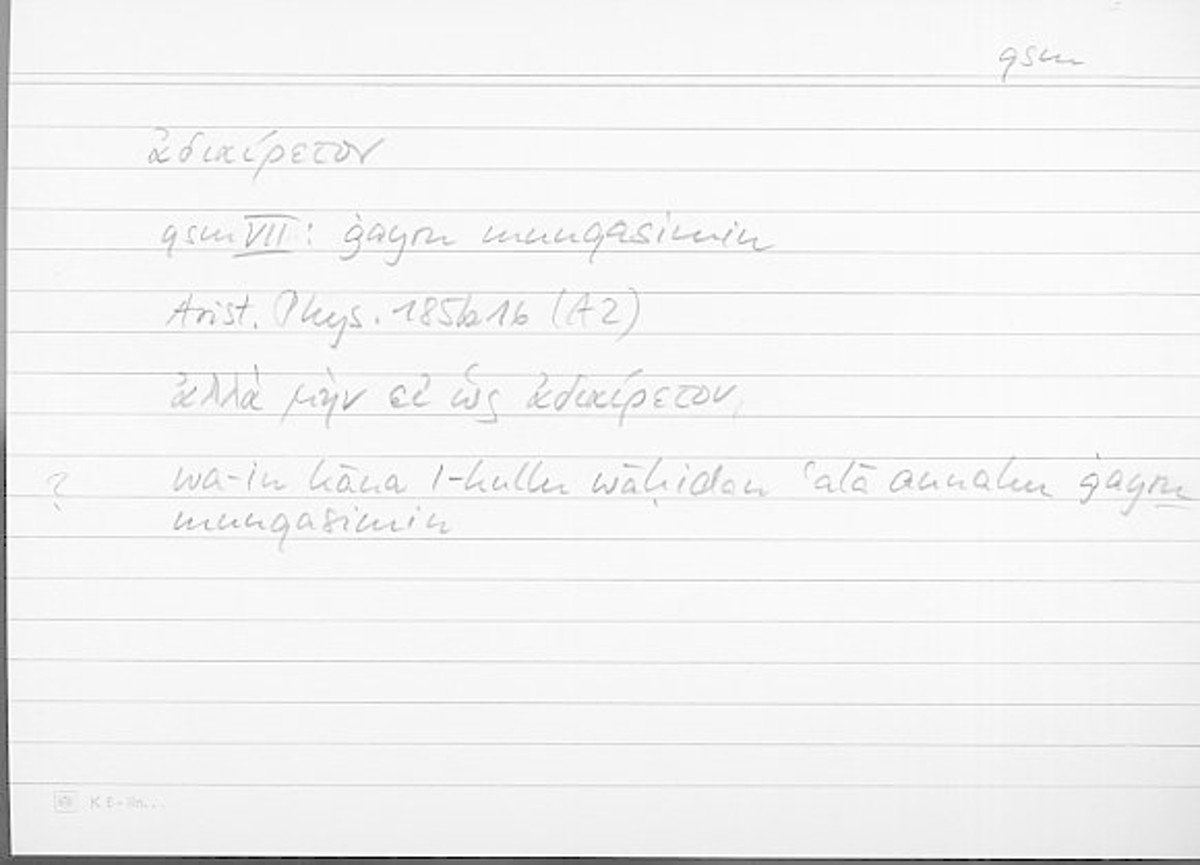 qsm
ἀδιαίρετον
qsm VII: ġayru munqasimin
Arist. Phys. 185b16 (A2)
ἀλλὰ μὴν εἰ ὡς ἀδιαίρετον,
? wa-in kāna l-kullu wāḥidan ʿalā annahu ġayru
munqasimin